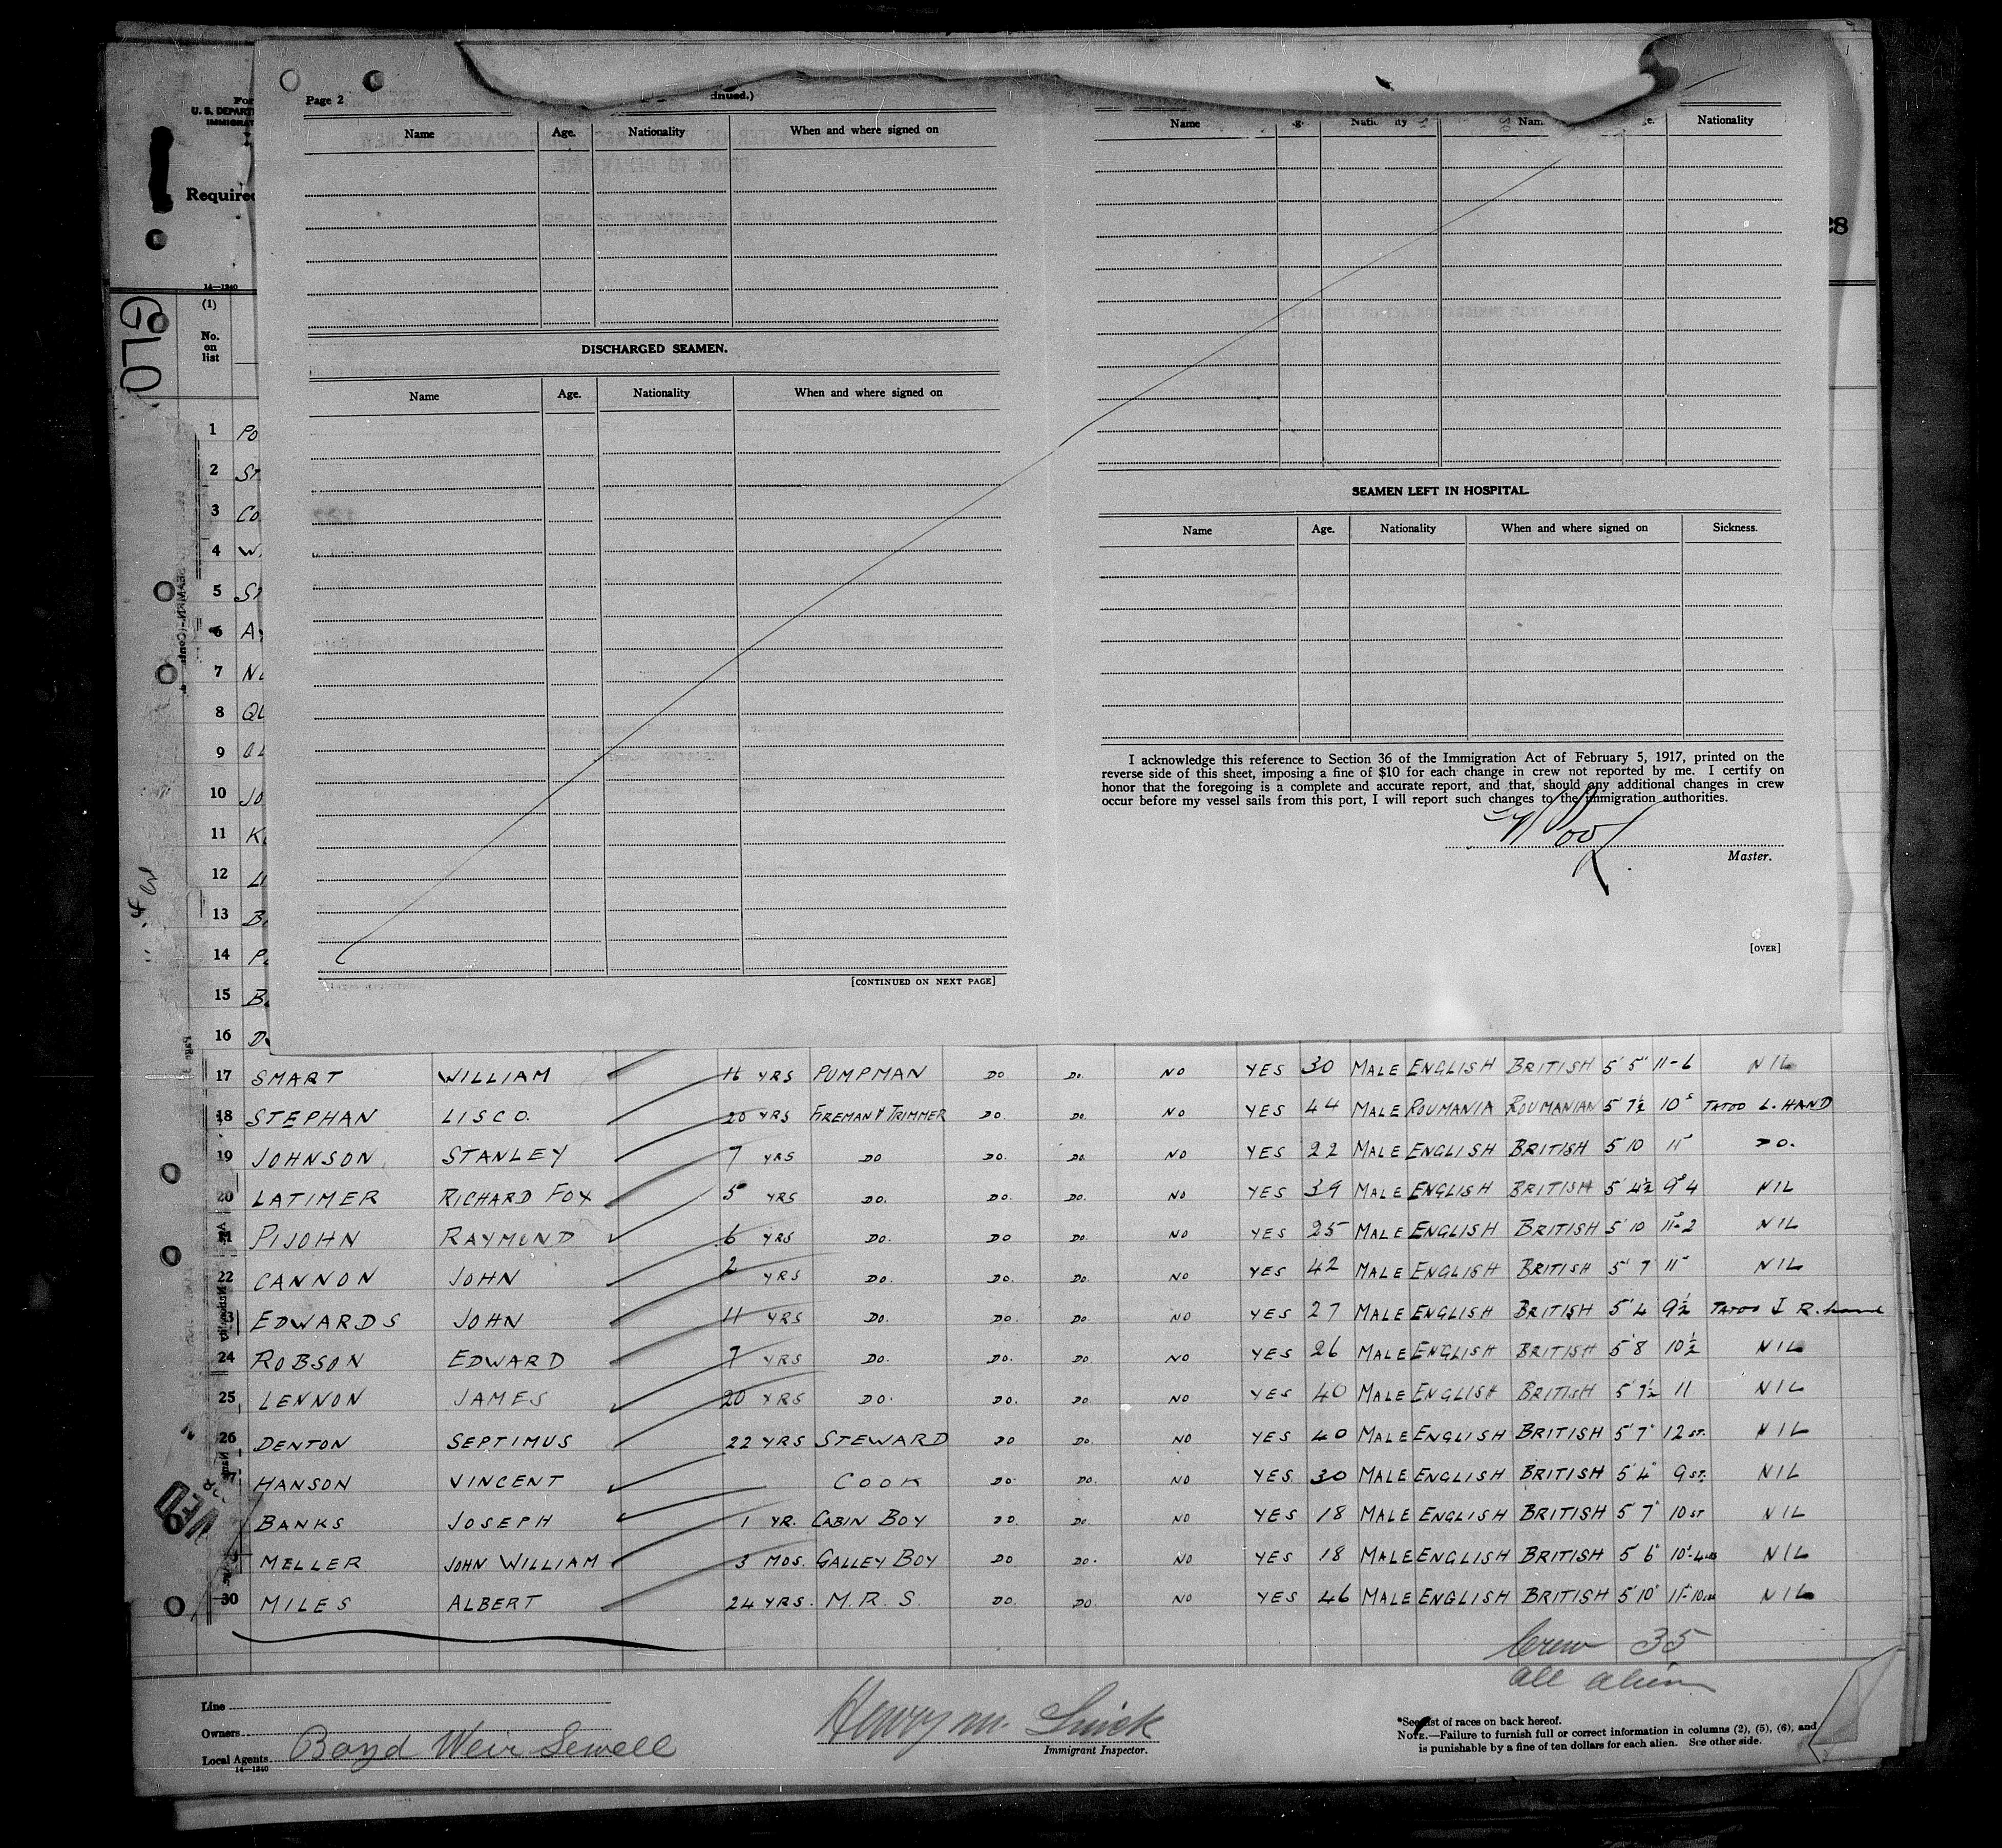 Page 2
Name Age. Nationality When and where signed on
DISCHARGED SEAMEN.
Name Age. Nationality When and where signed on
[CONTINUED ON NEXT PAGE]
Name Nationality
SEAMEN LEFT IN HOSPITAL.
Name Age. Nationality When and where signed on Sickness.
I acknowledge this reference to Section 36 of the Immigration Act of February 5, 1917, printed on the
reverse side of this sheet, imposing a fine of $10 for each change in crew not reported by me. I certify on
honor that the foregoing is a complete and accurate report, and that, should any additional changes in crew
occur before my vessel sails from this port, I will report such changes to the immigration authorities.
Master.
[OVER]
U. S. DEPART
IMMIGRAT
Required
14—1240
(1)
No.
on
list
1 Po
2 ST
3 Co
4 W
5 ST
6 A
7 N
8 QU
9
10 Jo
11 K
12 L
13 B
14 P
15 B
16 D
17 SMART WILLIAM 16 YRS PUMPMAN DO DO. NO YES 30 MALE ENGLISH BRITISH 5'5" 11-6 NIL
18 STEPHAN LISCO. 20 YRS FIREMAN & TRIMMER DO. DO. NO YES 44 MALE ROUMANIA ROUMANIAN 5'7½ 10s TATOO L. HAND
19 JOHNSON STANLEY 7 YRS DO DO. DO. NO YES 22 MALE ENGLISH BRITISH 5'10 11s DO.
20 LATIMER RICHARD FOX 5 YRS DO. DO. DO. NO YES 39 MALE ENGLISH BRITISH 5'4½ 9s4 NIL
21 PIJOHN RAYMOND 6 YRS DO. DO DO. NO YES 25 MALE ENGLISH BRITISH 5'10 11s-2 NIL
22 CANNON JOHN 2 YRS DO. DO. DO. NO YES 42 MALE ENGLISH BRITISH 5'7 11s NIL
23 EDWARDS JOHN 11 YRS DO. DO. DO. NO YES 27 MALE ENGLISH BRITISH 5'4 9½ TATOO R. hand
24 ROBSON EDWARD 7 YRS DO. DO. DO NO YES 26 MALE ENGLISH BRITISH 5'8 10½ NIL
25 LENNON JAMES 20 YRS DO. DO. DO. NO YES 40 MALE ENGLISH BRITISH 5'7½ 11 NIL
26 DENTON SEPTIMUS 22 YRS STEWARD DO DO. NO YES 40 MALE ENGLISH BRITISH 5'7" 12 ST. NIL
27 HANSON VINCENT COOK DO. DO. NO YES. 30 MALE ENGLISH BRITISH 5'4" 9 ST. NIL
BANKS JOSEPH 1 YR. CABIN BOY DO. DO. NO YES 18 MALE ENGLISH BRITISH 5'7" 10 ST NIL
MELLER JOHN WILLIAM 3 MOS. GALLEY BOY DO DO. NO YES 18 MALE ENGLISH BRITISH 5'6" 10s-4 NIL
30 MILES ALBERT 24 YRS. M.R.S. DO. DO. NO YES 46 MALE ENGLISH BRITISH 5'10" 11s-10 NIL
Crew 35
all alien
Line
Owners
Local Agents Boyd Weir Sewell
14—1240
Henry M.
Immigrant Inspector.
*See list of races on back hereof.
NOTE.—Failure to furnish full or correct information in columns (2), (5), (6), and
is punishable by a fine of ten dollars for each alien. See other side.